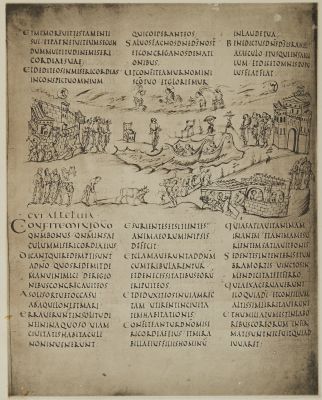 ETMEMORFUITTESTAMENTI
SUIETPAENITUITEUMSECUN
DUMMULTITUDINEMMISERI
CORDIAESUAE
ETDEDITEOSINMISERICORDIAS
INCONSPECTUOMNIUM
QUICEPERANTEOS
SALVOSFACNOSDNEDSNOST
ETCONGREGANOSDENATI
ONIBUS
UTCONFITEAMURNOMINI
SCOTUOETGLORIEMUR
INLAUDETUA
BENEDICTUSDNSDSISRAHEL
ASAECULOETUSQUEINSAECU
LUMETDICETOMNISPOPU
LUSFIATFIAT
CVI ALLELUIA
CONFITEMINIDNO
QNMBONUS QNMINSAE
CULUMMISERICORDIAEIUS
DICANTQUIREDEMPTISUNT
ADNOQUOSREDEMITDE
MANUINIMICI DEREGIO
NIBUSCONGREGAVITEOS
ASOLISORTUETOCCASU
ABAQUILONEETMARI
ERRAVERUNTINSOLITUDI
NEININAQUOSOVIAM
CIVITATISHABITACULI
NONINVENERUNT
ESURIENTESETSITIENTES
ANIMAEORUMINIPSIS
DEFECIT
ETCLAMAVERUNTADDNM
CUMTRIBULARENTUR
ETDENECESSITATIBUSEORU
ERIPUITEOS
ETDEDUXITEOSINVIAMREC
TAMUTIRENTINCIVITA
TEMHABITATIONIS
CONFITEANTURDNOMISE
RICORDIAEEIUS ETMIRA
BILIAEIUSFILIISHOMINU
QUIASATIAVITANIMAM
INANEMETANIMAMESU
RIENTEMSATIAVITBONIS
SEDENTESINTENEBRISETUM
BRAMORTIS VINCTOSIN
MENDICITATEETFERRO
QUIAEXACERBAVERUNT
ELOQUIADI ETCONSILIUM
ALTISSIMIIRRITAVERUNT
ETHUMILIATUMESTINLABO
RIBUSCOREORUM INFIR
MATISUNTNECFUITQUIAD
IUVARET